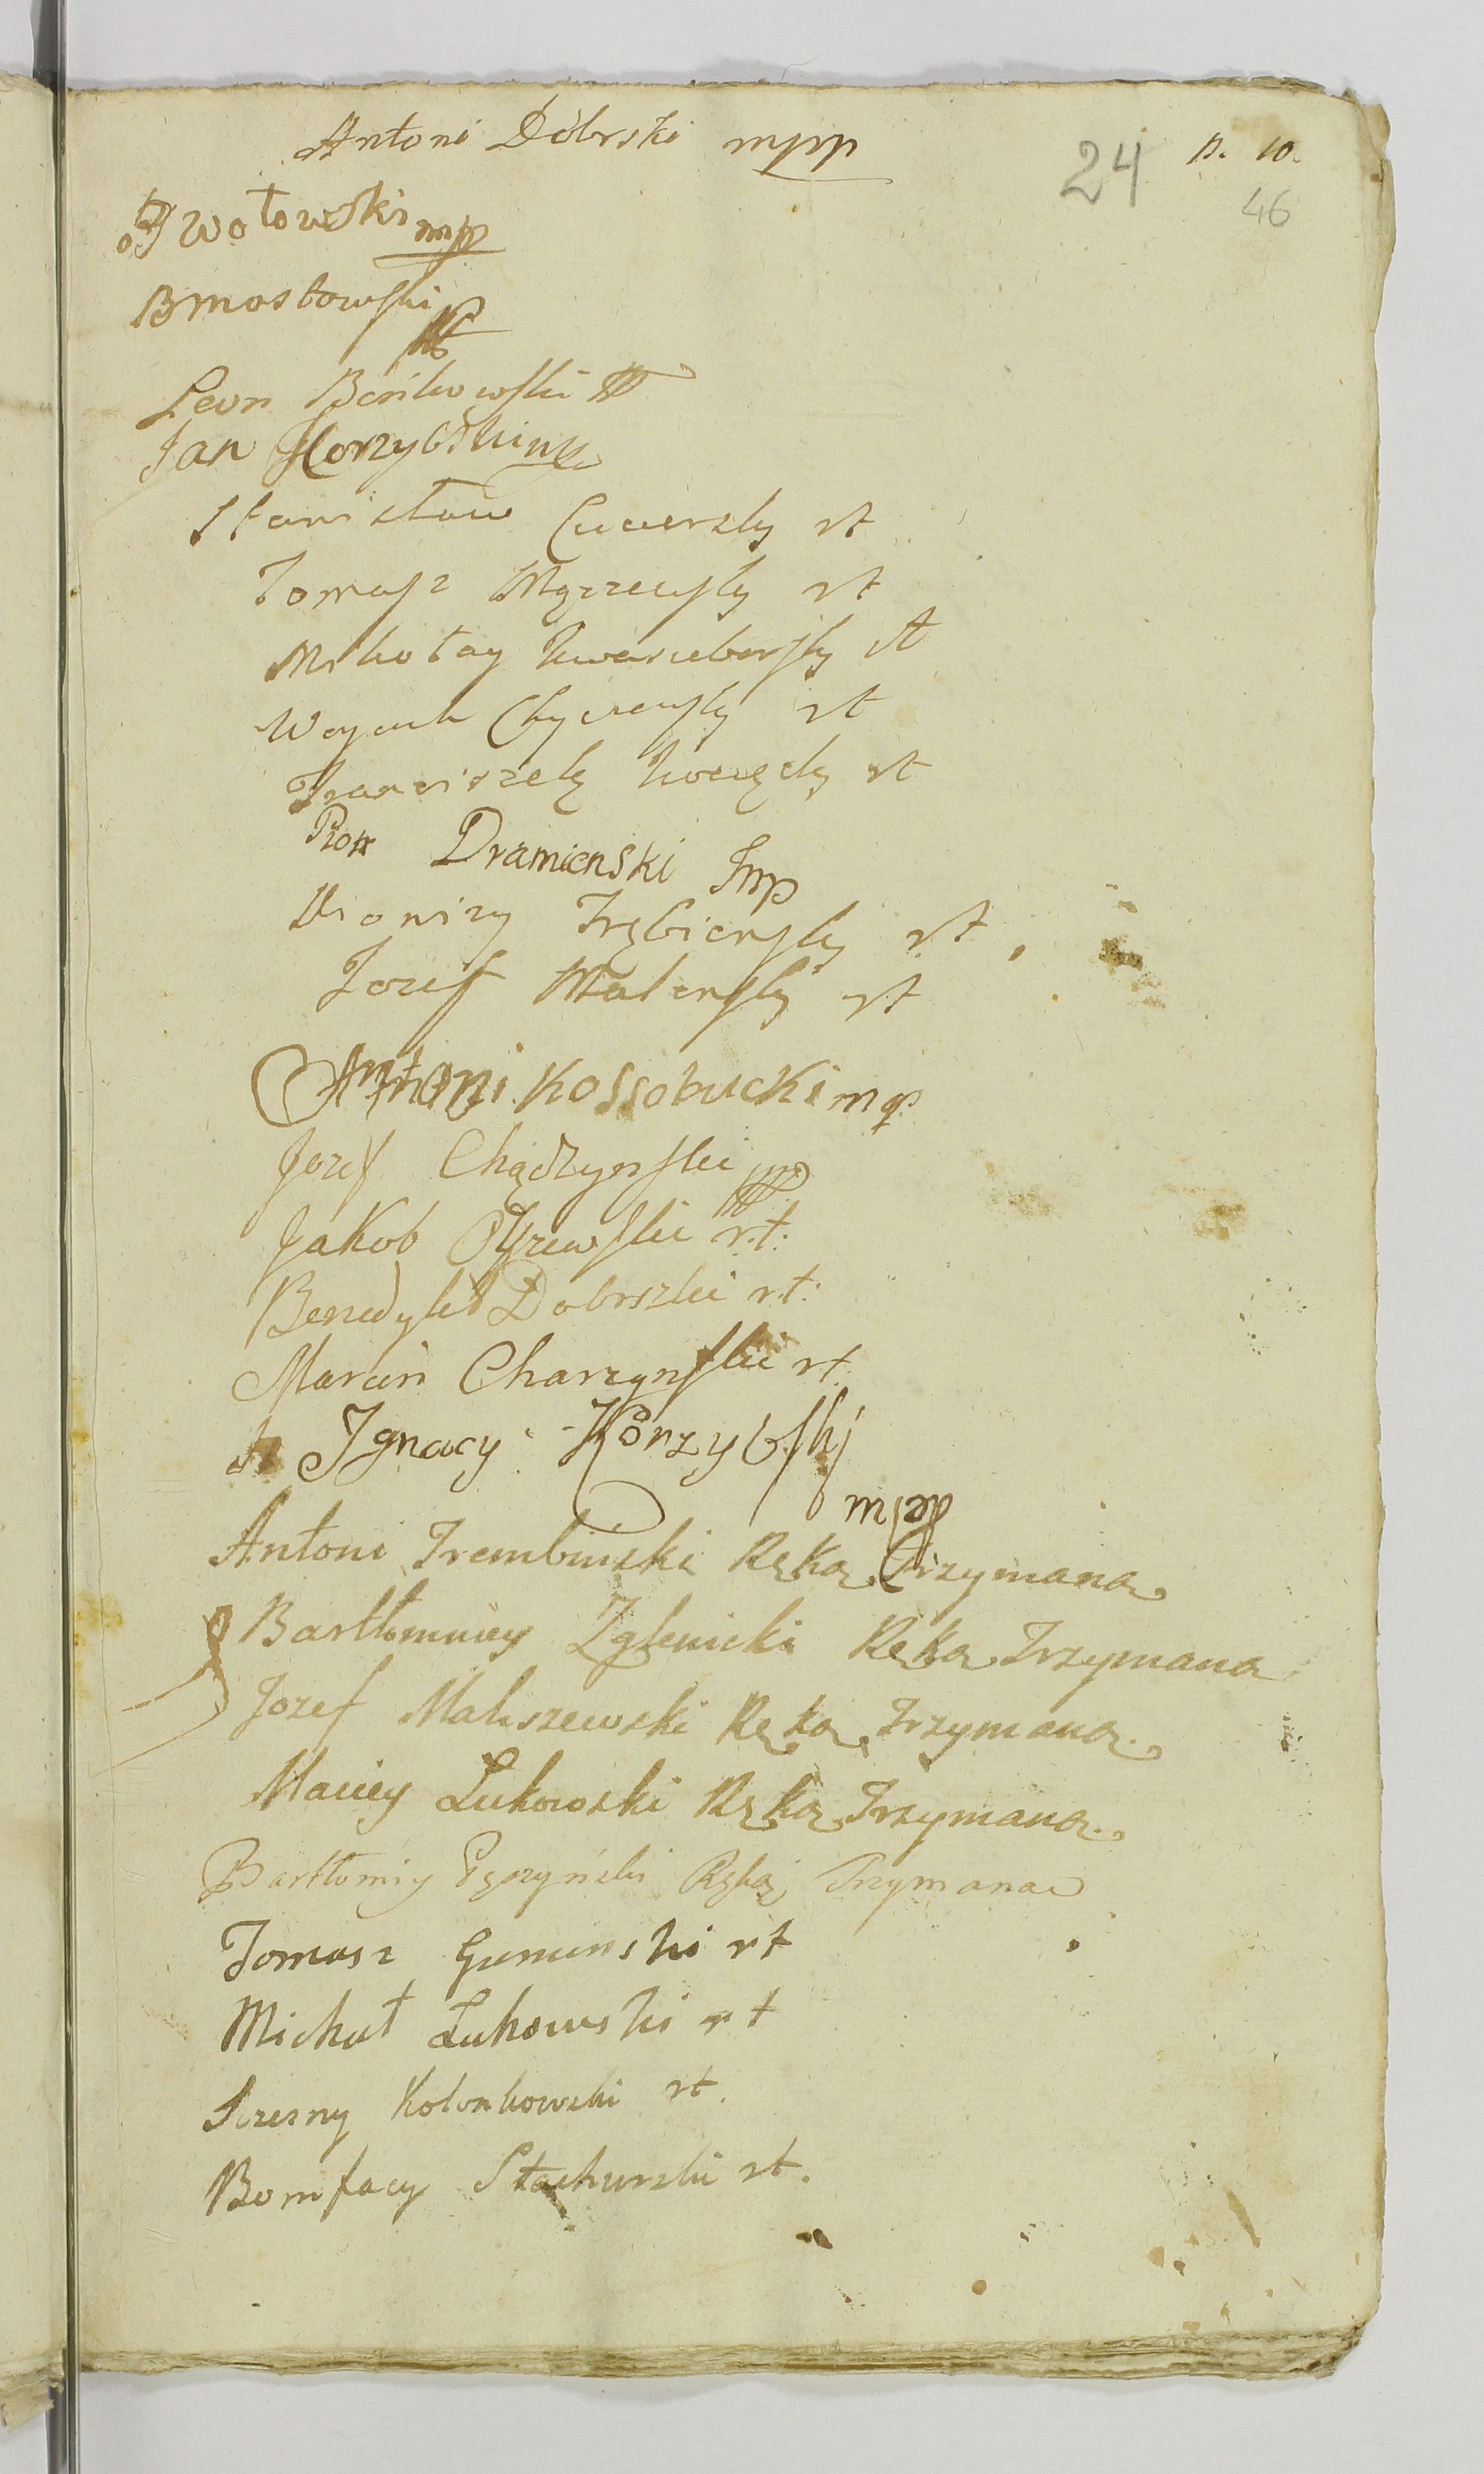 Antoni Dóbrski mpp
24 n. 10.
46
Wołowski mp
B Mostowski
Leon Bońkowski
Jan Korzybski mp
Stanisław rt
Tomasz rt
Mikołay rt
Woyciech rt
Franciszek rt
Piotr Dramienski mp
Dionizy Trębiensky rt
Jozef Malensky rt
Antoni Kossobucki mp
Jozef Chądzynski
Jakob rt.
Benedykt Dobrski rt.
Marcin Charzynski rt.
Ignacy Korzybskj
mpp
Antoni Trembiński Ręką Trzymaną
Bartłomiey Zglenicki Ręką Trzymaną
Jozef Maliszewski Ręką Trzymaną
Maciey Lukowski Ręką Trzymaną
Bartłomiy Ręką Trzymaną
Tomasz Guminski rt
Michał Lukowski rt
Sczesny Kolonkowski rt.
Bonifacy Stachurski rt.